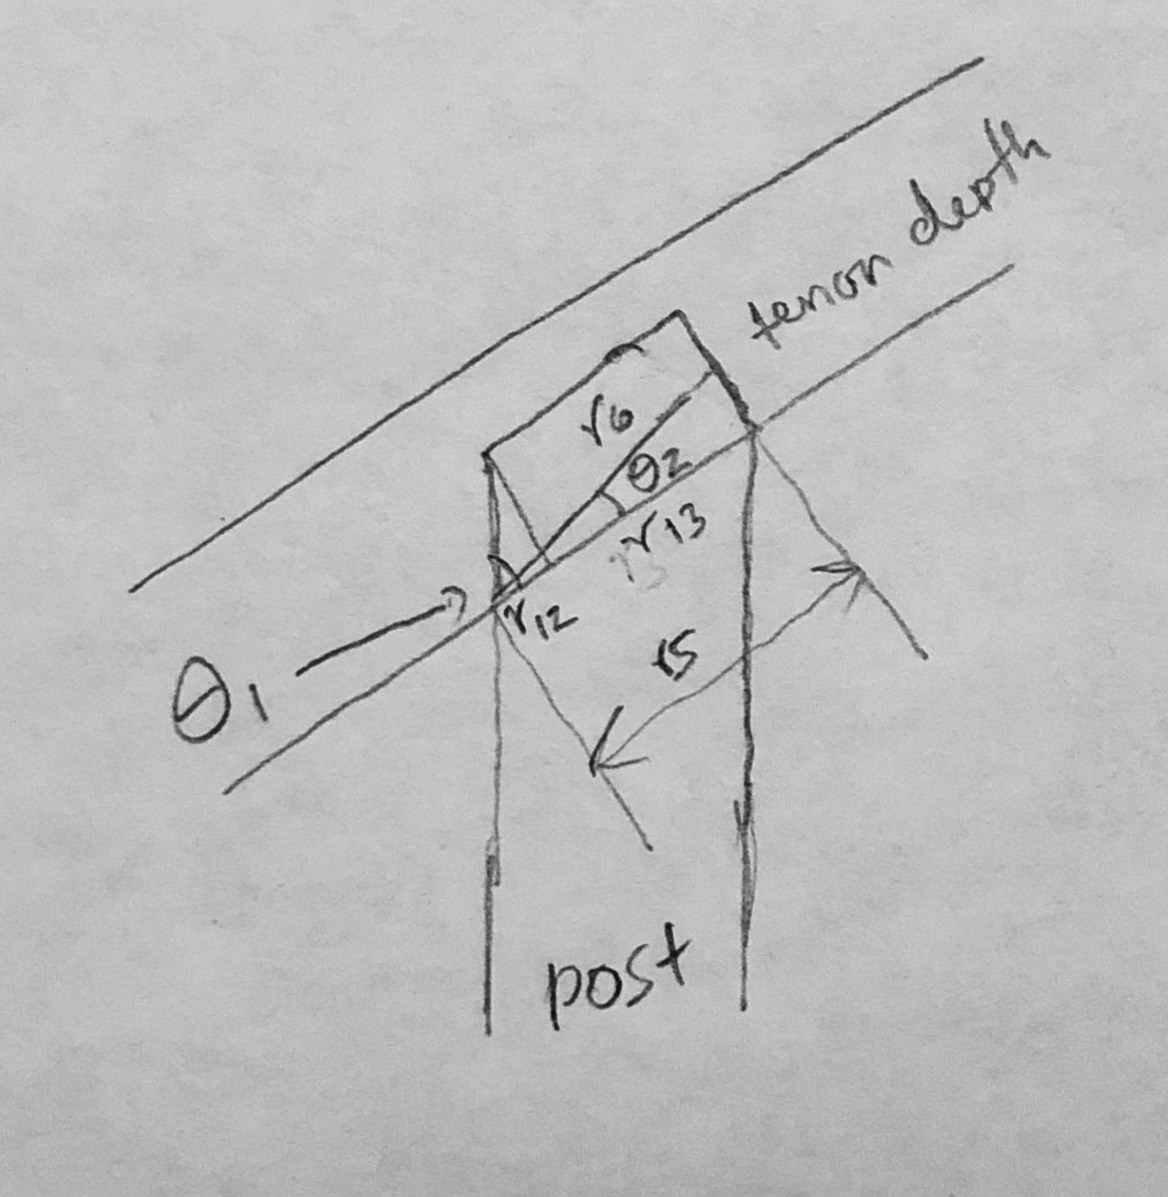 tenon depth
r6
θ2
r13
r12
θ1
r5
post